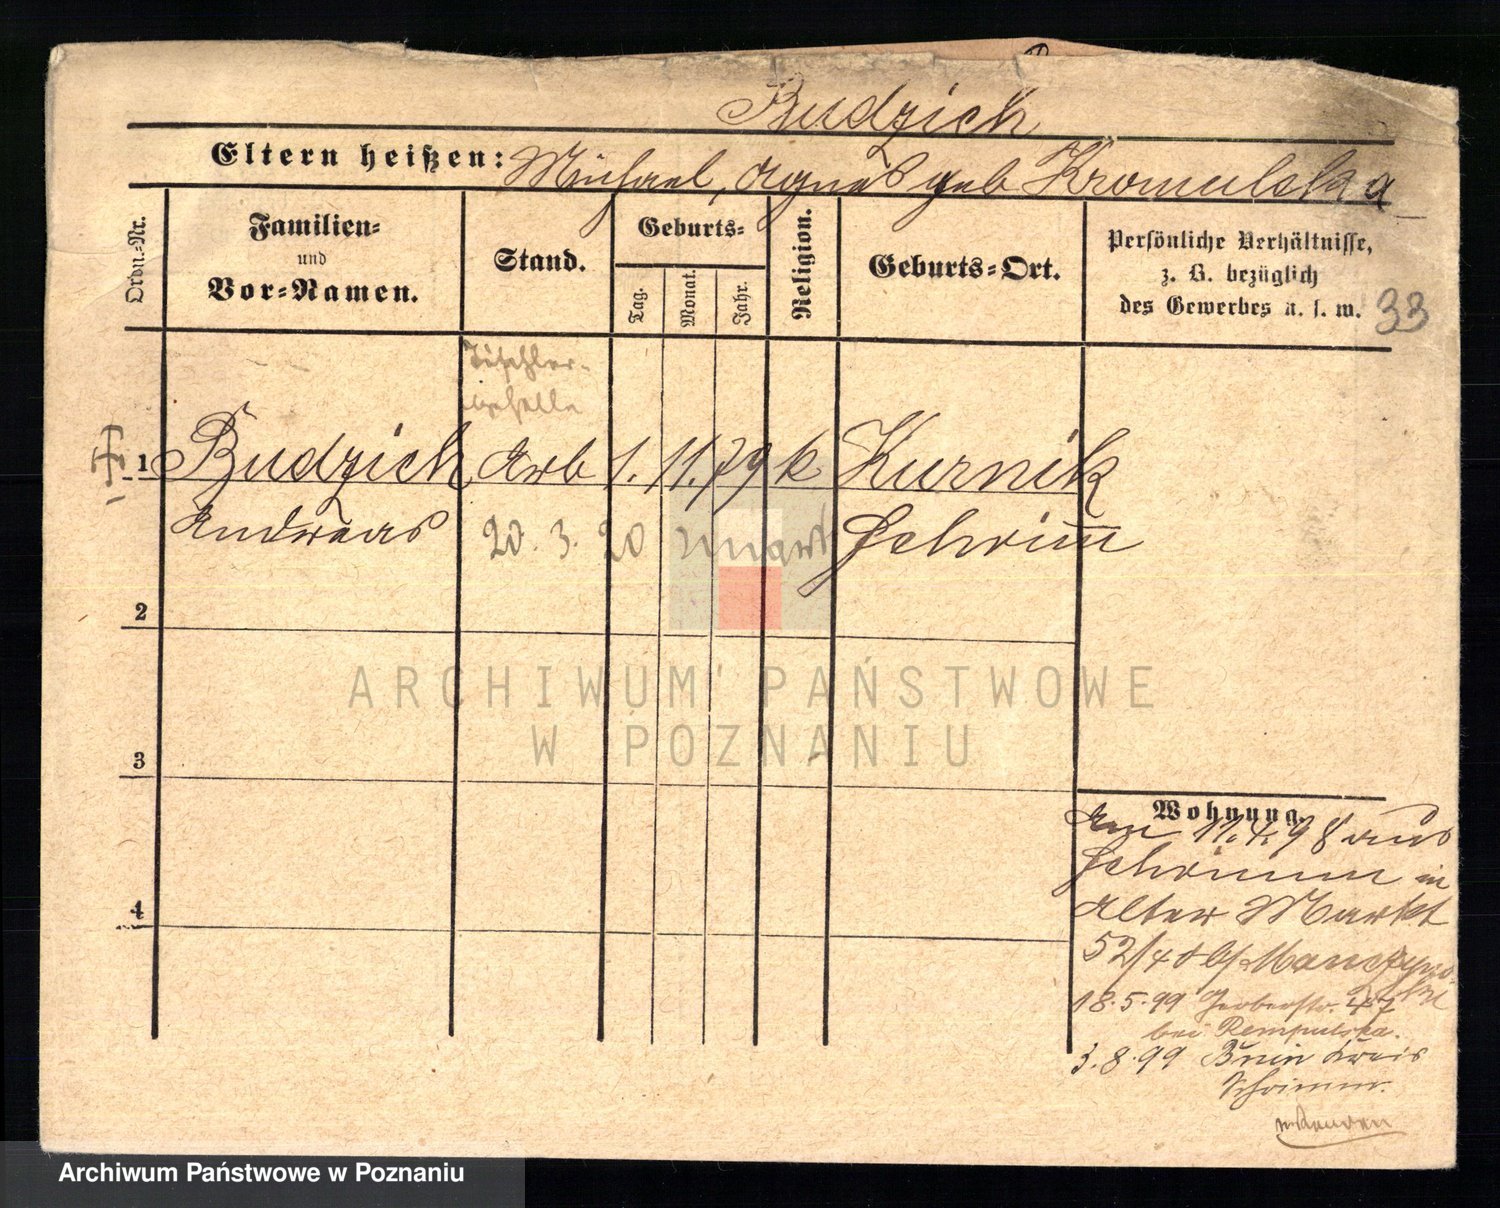 Budzich
Eltern heißen: Michael, Agnes geb Kromulska
Ordn.-Nr.
Familien-
und
Vor-Namen.
Stand.
Geburts-
Tag.
Monat.
Jahr.
Religion.
Geburts-Ort.
Persönliche Verhältnisse,
z. B. bezüglich
des Gewerbes u. s. w. 33
Tischler-
geselle
1 Budzich Arb 1. 11. 79 k Kurnik
Andreas 20. 3. 20 Schrim̅
2
3
4
Wohnung.
Am 11.4.98 aus
Schrimm in
Alter Markt
52/4 b/
18.5.99 Gerberstr. 47
bei Rempulska.
3.8.99 Bnin Kreis
Schrimm.
ARCHIWUM PAŃSTWOWE
W POZNANIU
Archiwum Państwowe w Poznaniu